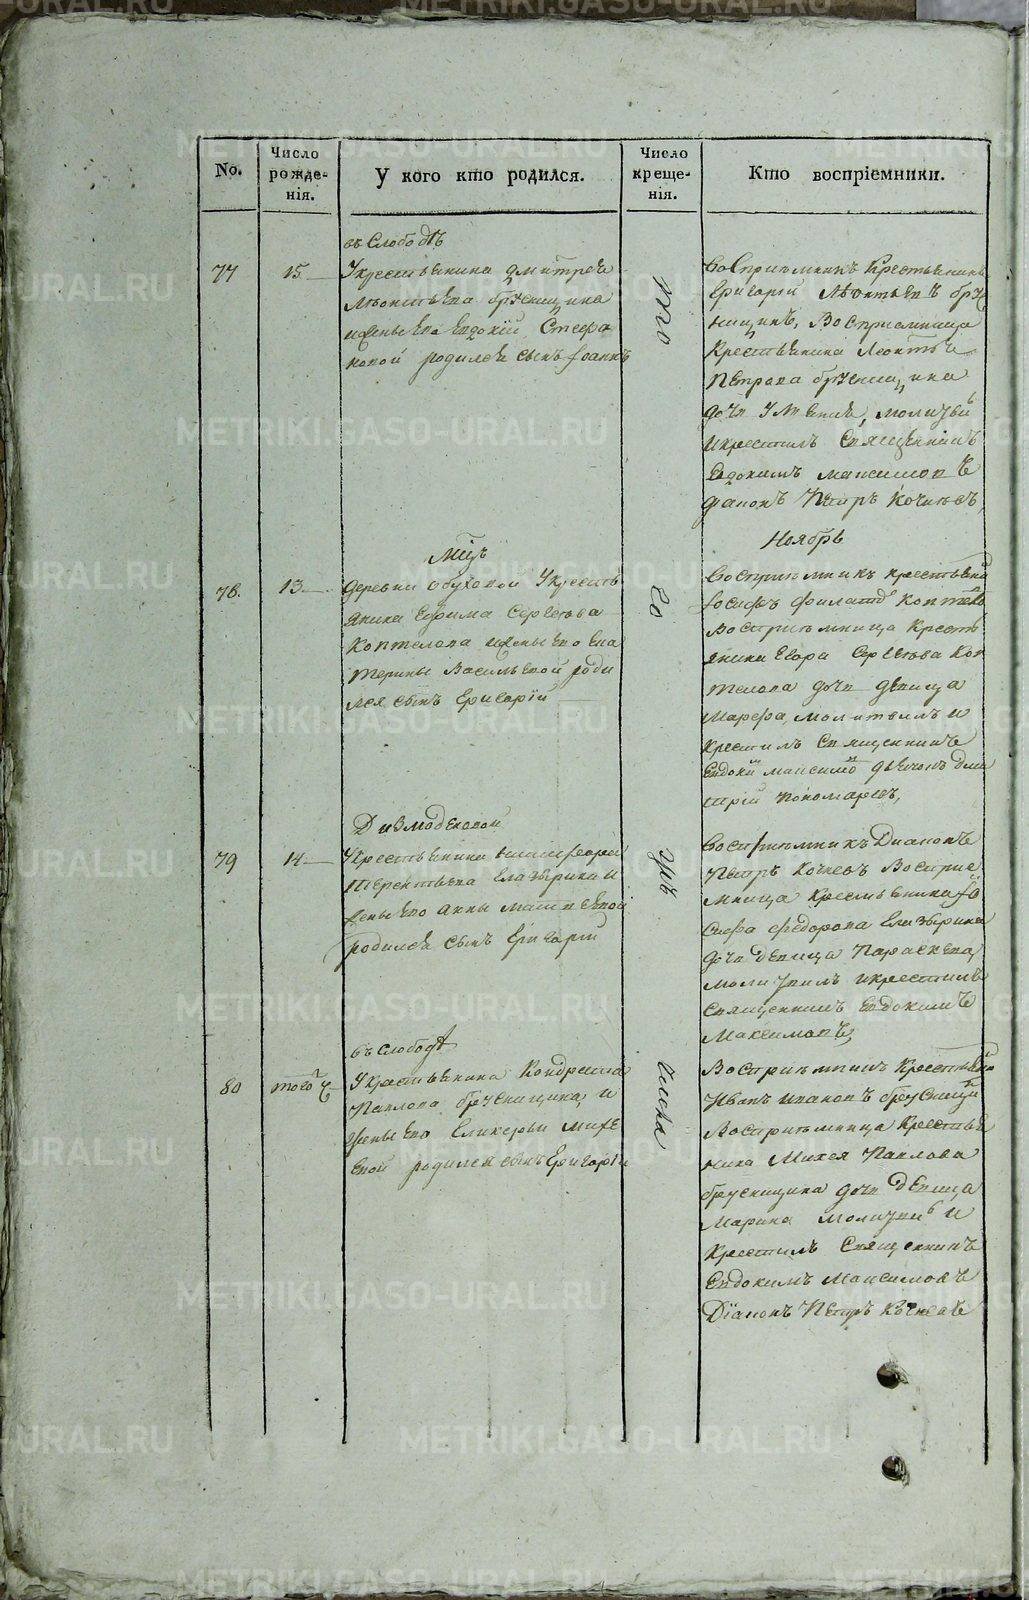 METRIKI.GASO-URAL.RU
No.
Число рожде-нія.
У кого кто родился.
Число креще-нія.
Кто воспріемники.
въ Слободѣ
77
15
Укрестьянина дмитрея
Леонтьева брусницина
иженыего Евдокiи Стефа
новой родился сынъ Iоаннъ
Воспрiемникъ Крестьянинъ
Григорiй Леонтьевъ брус
ницинъ, Воспрiемница
Крестьянина Леонтья
Петрова брусницина
дочь
икрестилъ Священникъ
Евдокимъ Максимовъ
дiаконъ Петръ Кочневъ,
Ноябрь
78.
13
20
деревни обуховой Укресть
янина Ефима Сергеева
Коптелова иженыего Ека
терины Васильевой роди
лся сынъ Григорiй
Воспрiемникъ крестьянинъ
Iосифъ Коптеловъ
Воспрiемница Кресть
янина Егора Сергеева Коп
телова дочь девица
Марфа, молитвилъ и
Крестилъ Священникъ
Евдокимъ Максимовъ дьячокъ Дми
трiй Пономаревъ,
79
14
Укрестьянина
Терентьева Глазырина и
жены его Анны Матвеевой
родился сынъ Григорiй
Воспрiемникъ Дiаконъ
Петръ Кочневъ Воспрiе
мница Крестьянина Iо
сифа Федорова Глазырина
дочь девица Параскева,
икрестилъ
Священникъ Евдокимъ
Максимовъ,
въ Слободѣ
80
того ч
числа
Укрестьянина Кондратья
Павлова брусницина, и
жены его Гликерьи Михе
евой родился сынъ Григорiй
Воспрiемникъ Крестьянинъ
Иванъ Ивановъ брусницинъ
Воспрiемница Крестья
нина Михея Павлова
брусницина дочь девица
Марина и
Крестилъ Священникъ
Евдокимъ Максимовъ
Дiаконъ Петръ Кочневъ